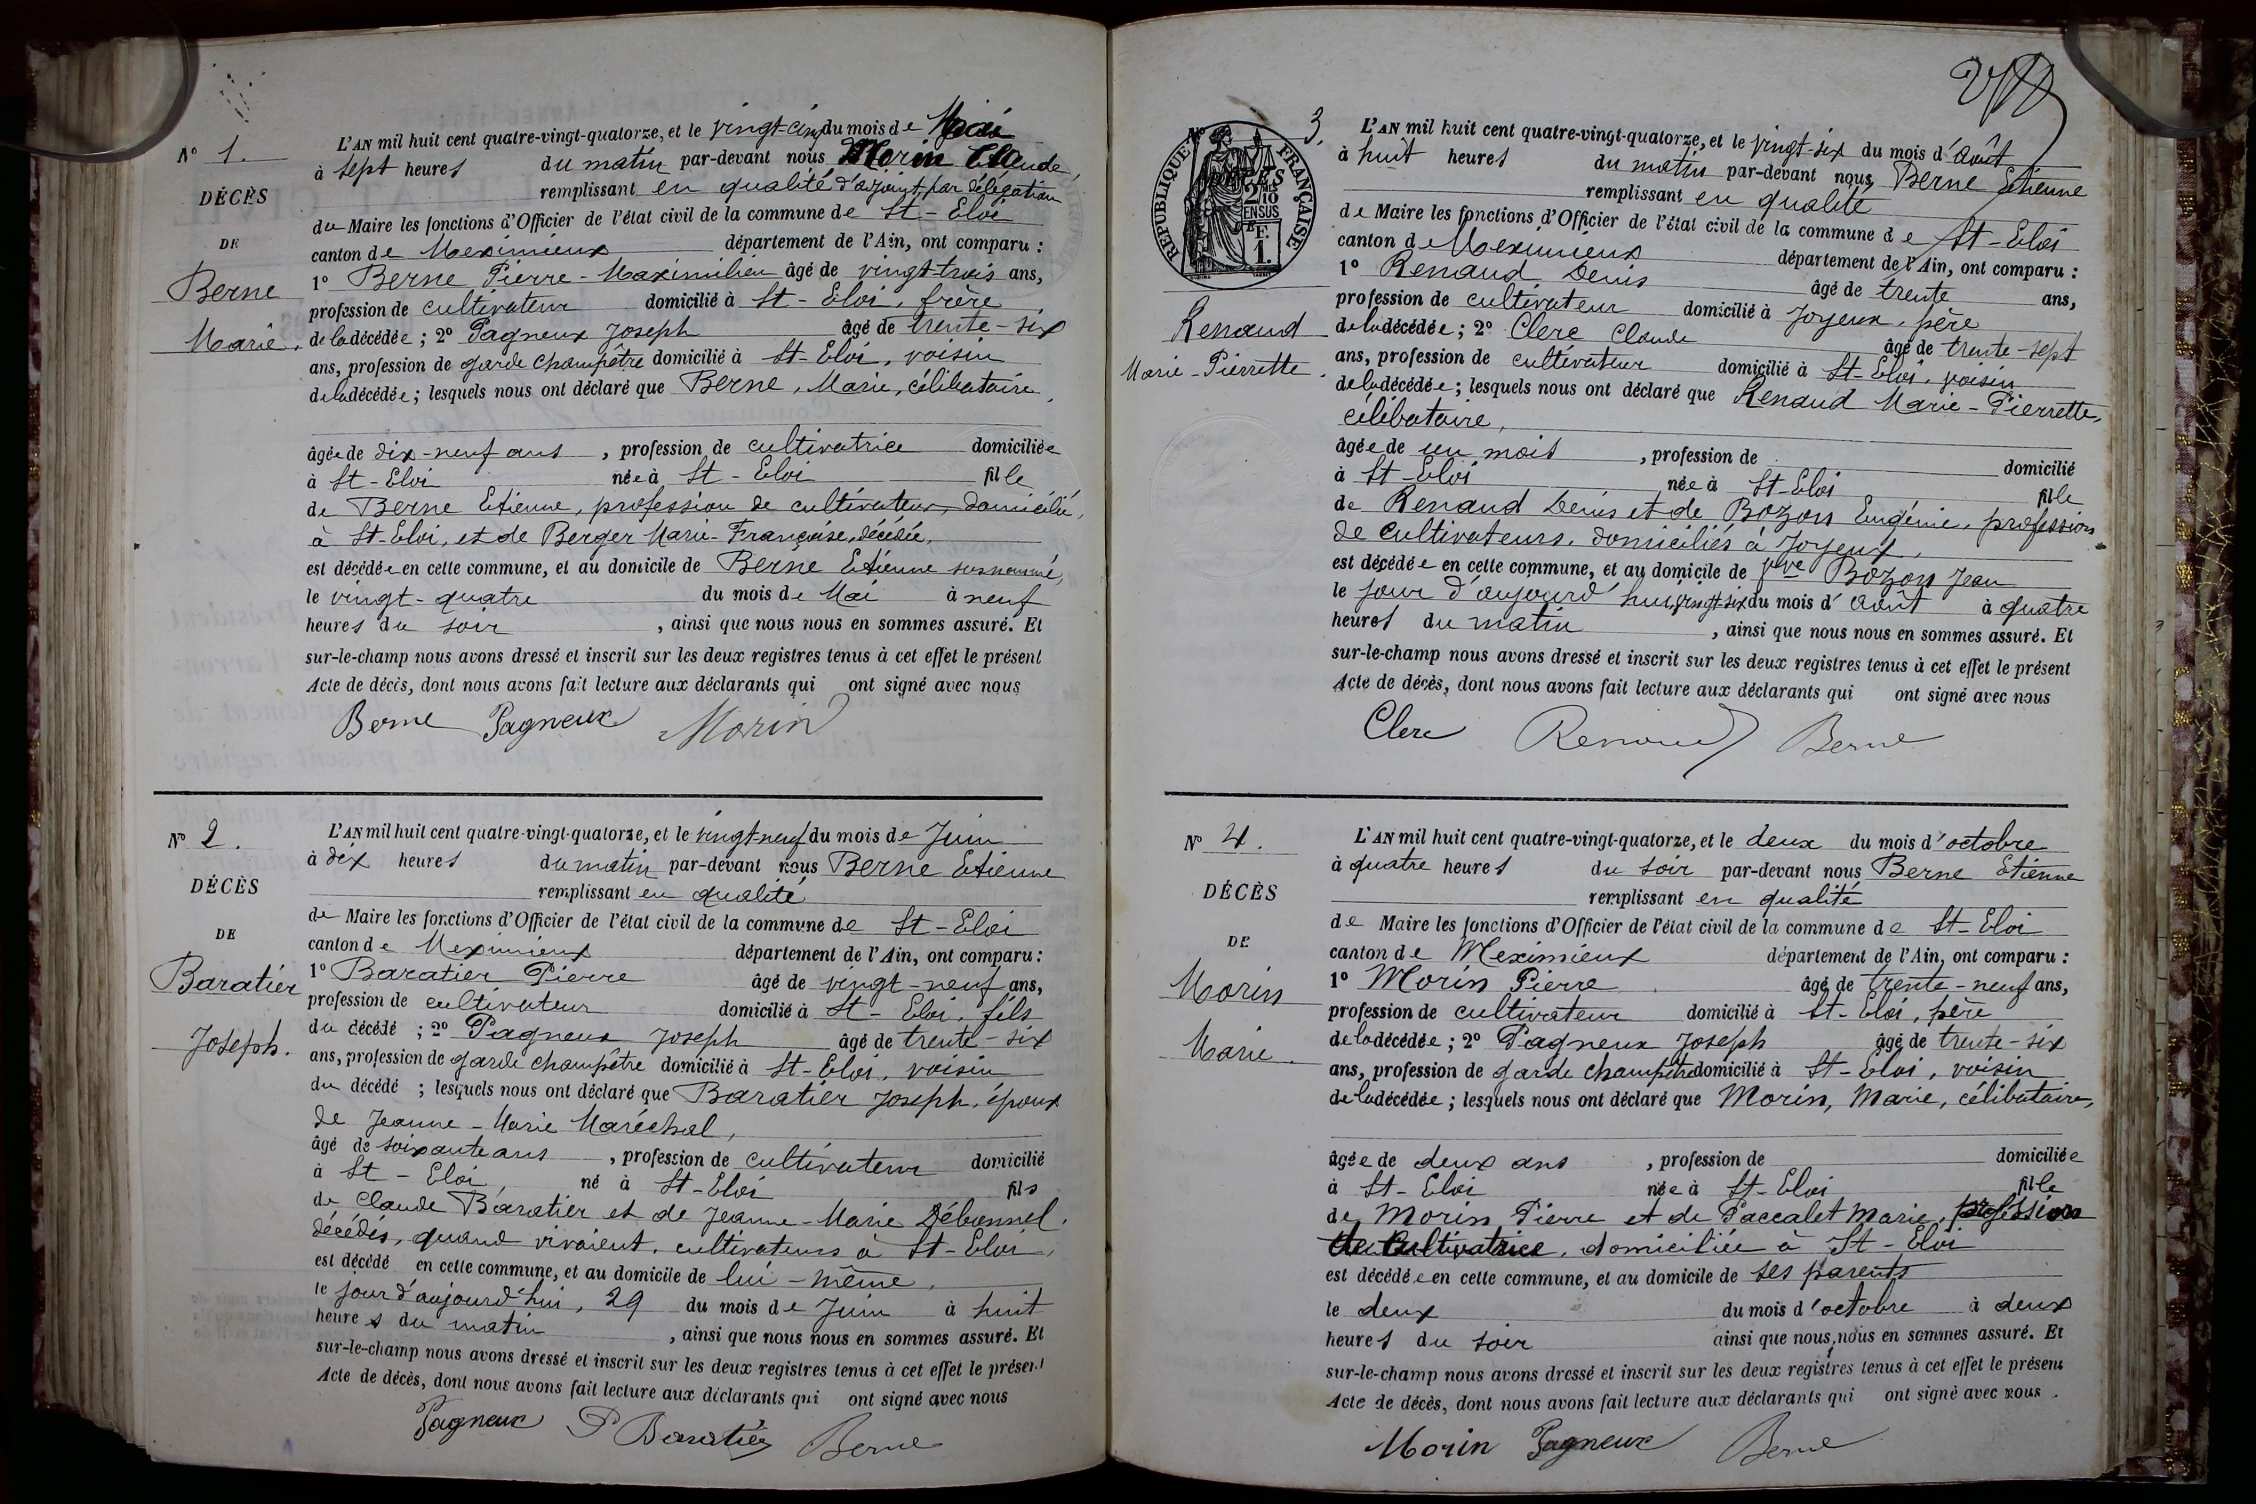 N° 1.
DÉCÈS
DE
Berne
Marie.
L'AN mil huit cent quatre-vingt-quatorze, et le vingt-cinq du mois de Mai
à sept heures du matin par-devant nous Morin Claude,
remplissant en qualité d'adjoint, par délégation
du Maire les fonctions d'Officier de l'état civil de la commune de St-Eloi
canton de Meximieux département de l'Ain, ont comparu :
1° Berne Pierre-Maximilien âgé de vingt-trois ans,
profession de cultivateur domicilié à St-Eloi, frère
de la décédée ; 2° Pagneux Joseph âgé de trente-six
ans, profession de garde champêtre domicilié à St-Eloi, voisin
de la décédée ; lesquels nous ont déclaré que Berne, Marie, célibataire,
âgée de dix-neuf ans , profession de cultivatrice domiciliée
à St-Eloi née à St-Eloi fille
de Berne Etienne, profession de cultivateur, domicilié,
à St-Eloi, et de Berger Marie-Françoise, décédée,
est décédée en cette commune, et au domicile de Berne Etienne susnommé,
le vingt-quatre du mois de Mai à neuf
heures du soir , ainsi que nous nous en sommes assuré. Et
sur-le-champ nous avons dressé et inscrit sur les deux registres tenus à cet effet le présent
Acte de décès, dont nous avons fait lecture aux déclarants qui ont signé avec nous
Berne Pagneux Morin
N° 2.
DÉCÈS
DE
Baratier
Joseph.
L'AN mil huit cent quatre-vingt-quatorze, et le vingt-neuf du mois de Juin
à dix heures du matin par-devant nous Berne Etienne
remplissant en qualité
de Maire les fonctions d'Officier de l'état civil de la commune de St-Eloi
canton de Meximieux département de l'Ain, ont comparu :
1° Baratier Pierre âgé de vingt-neuf ans,
profession de cultivateur domicilié à St-Eloi, fils
du décédé ; 2° Pagneux Joseph âgé de trente-six
ans, profession de garde champêtre domicilié à St-Eloi, voisin
du décédé ; lesquels nous ont déclaré que Baratier Joseph, époux
de Jeanne-Marie Maréchal,
âgé de soixante ans , profession de cultivateur domicilié
à St-Eloi, né à St-Eloi fils
de Claude Baratier et de Jeanne-Marie
décédés, quand vivaient, cultivateurs à St-Eloi,
est décédé en cette commune, et au domicile de lui-même,
le jour d'aujourd'hui, 29 du mois de Juin à huit
heures du matin , ainsi que nous nous en sommes assuré. Et
sur-le-champ nous avons dressé et inscrit sur les deux registres tenus à cet effet le présent
Acte de décès, dont nous avons fait lecture aux déclarants qui ont signé avec nous
Pagneux P Baratier Berne
N° 3.
RÉPUBLIQUE FRANÇAISE
2/10
EN SUS
1 F.
Renaud
Marie-Pierrette.
L'AN mil huit cent quatre-vingt-quatorze, et le vingt-six du mois d'août
à huit heures du matin par-devant nous Berne Etienne
remplissant en qualité
de Maire les fonctions d'Officier de l'état civil de la commune de St-Eloi
canton de Meximieux département de l'Ain, ont comparu :
1° Renaud Denis âgé de trente ans,
profession de cultivateur domicilié à Joyeux, père
de la décédée ; 2° Clerc Claude âgé de trente-sept
ans, profession de cultivateur domicilié à St-Eloi, voisin
de la décédée ; lesquels nous ont déclaré que Renaud Marie-Pierrette,
célibataire,
âgée de un mois , profession de domicilié
à St-Eloi née à St-Eloi fille
de Renaud Denis et de Bozon Eugénie, profession
de cultivateurs, domiciliés à Joyeux,
est décédée en cette commune, et au domicile de Vve Bozon Jean
le jour d'aujourd'hui, vingt-six du mois d'août à quatre
heures du matin , ainsi que nous nous en sommes assuré. Et
sur-le-champ nous avons dressé et inscrit sur les deux registres tenus à cet effet le présent
Acte de décès, dont nous avons fait lecture aux déclarants qui ont signé avec nous
Clerc Renaud Berne
N° 4.
DÉCÈS
DE
Morin
Marie.
L'AN mil huit cent quatre-vingt-quatorze, et le deux du mois d'octobre
à quatre heures du soir par-devant nous Berne Etienne
remplissant en qualité
de Maire les fonctions d'Officier de l'état civil de la commune de St-Eloi
canton de Meximieux département de l'Ain, ont comparu :
1° Morin Pierre âgé de trente-neuf ans,
profession de cultivateur domicilié à St-Eloi, père
de la décédée ; 2° Pagneux Joseph âgé de trente-six
ans, profession de garde champêtre domicilié à St-Eloi, voisin
de la décédée ; lesquels nous ont déclaré que Morin, Marie, célibataire,
âgée de deux ans , profession de domiciliée
à St-Eloi née à St-Eloi fille
de Morin Pierre et de Paccalet Marie, profession
de Cultivatrice, domiciliée à St-Eloi
est décédée en cette commune, et au domicile de ses parents
le deux du mois d'octobre à deux
heures du soir ainsi que nous, nous en sommes assuré. Et
sur-le-champ nous avons dressé et inscrit sur les deux registres tenus à cet effet le présent
Acte de décès, dont nous avons fait lecture aux déclarants qui ont signé avec nous.
Morin Pagneux Berne